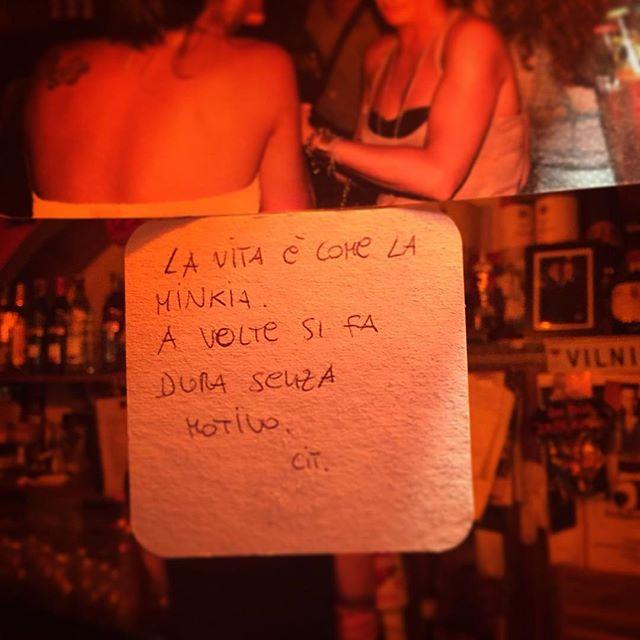 LA VITA È COME LA
MINKIA.
A VOLTE SI FA
DURA SENZA
MOTIVO.
CIT.
VILNI